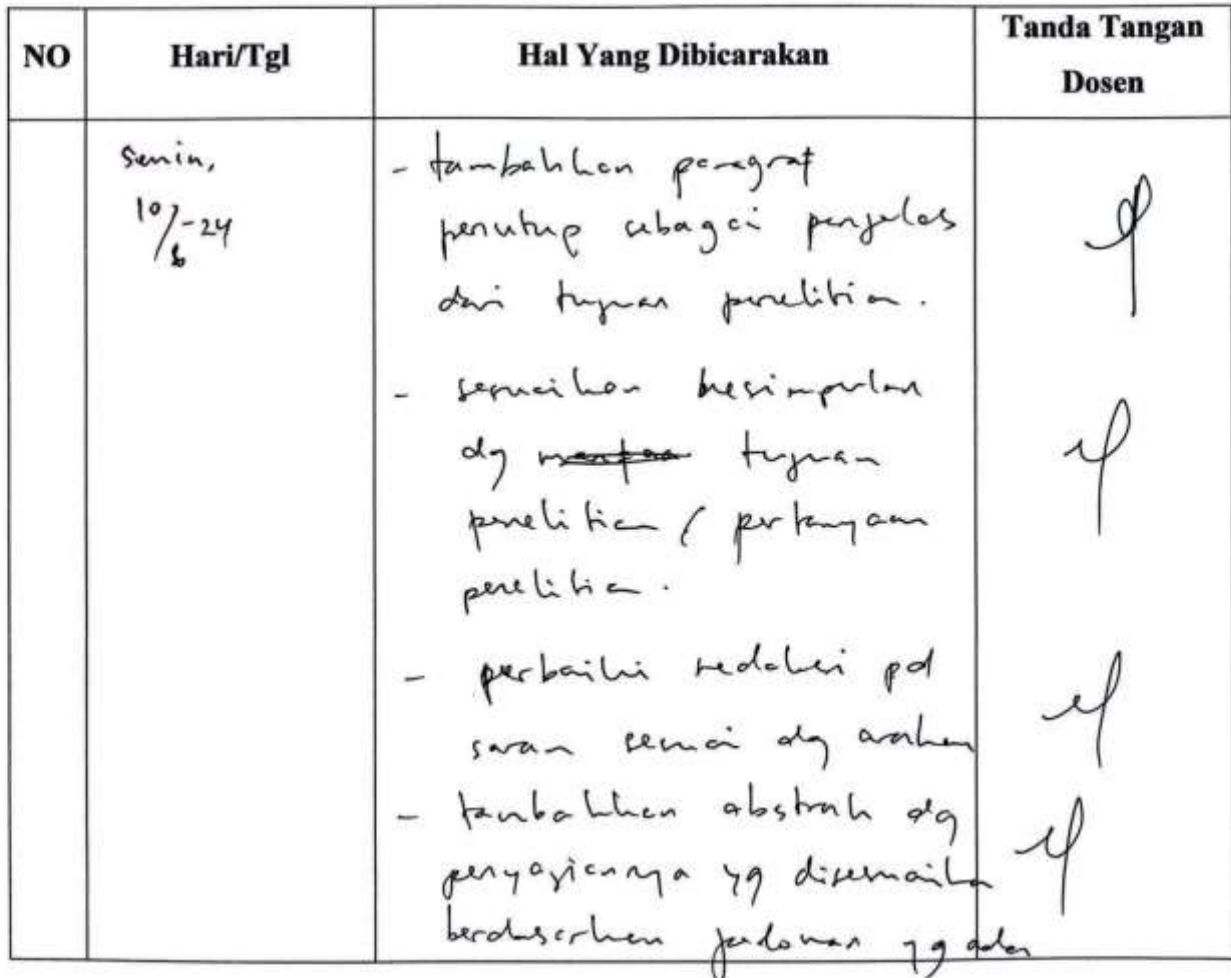 NO Hari/Tgl Hal Yang Dibicarakan Tanda Tangan Dosen
Senin,
10/6-24
- tambahkan paragraf
penutup sebagai penjelas
dari tujuan penelitian.
- sesuaikan kesimpulan
dg tujuan
penelitian / pertanyaan
penelitian.
- perbaiki redaksi pd
saran sesuai dg arahan
- tambahkan abstrak dg
penyajiannya yg disesuaikan
berdasarkan pedoman yg ada